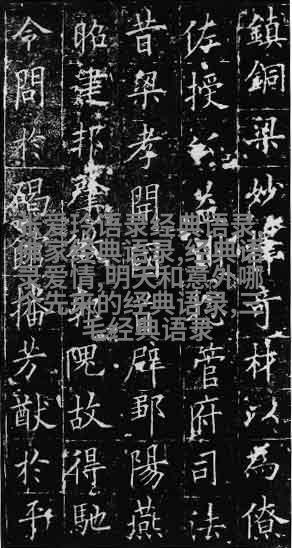 鎮銅梁妙擇奇材以為僚
佐授公益州總管府司法
昔梁孝開國首辟鄒陽燕
昭建邦肇徵郭隗故得馳
令問於碣館播芳猷於平
张爱玲语录经典语录,
佛家经典语录,经典语
录爱情,明天和意外哪
个先来的经典语录,三
毛经典语录